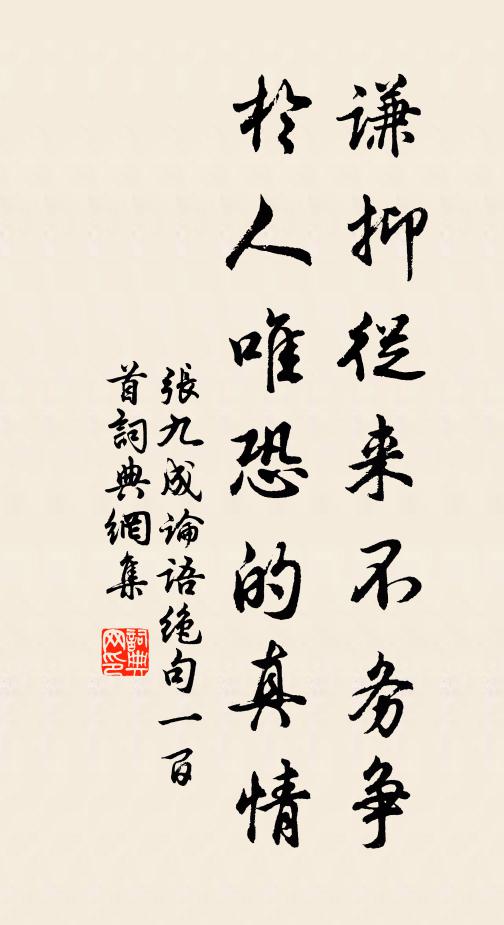 謙抑從来不务争
於人唯恐的真情
張九成論語绝句一百
首詞典網集
詞典网印